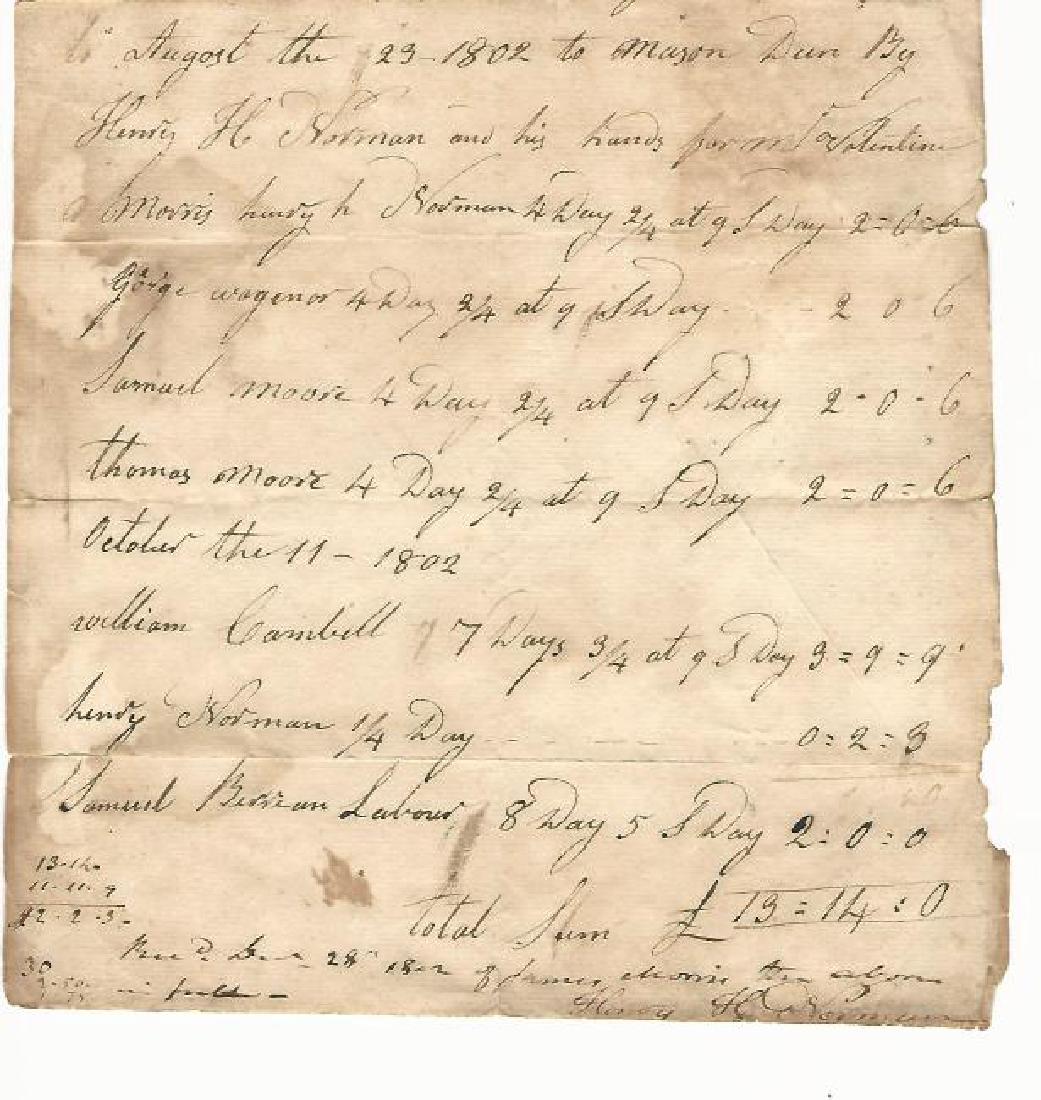 August the 23 - 1802 to Mason Dun By
Henry H Norman and his hands for mr Volentine
Morris henry h Norman 4 Day 2/4 at 9 S Day 2=0=6
George wagenor 4 Day 2/4 at 9 S Day - - 2 0 6
Samuel Moore 4 Day 2/4 at 9 S Day 2-0-6
thomas Moore 4 Day 2/4 at 9 S Day 2=0=6
October the 11 - 1802
william Cambell 7 Days 3/4 at 9 S Day 3=9=9
henry Norman 1/4 Day - - - - - 0=2=3
Samuel Berrean Labour 8 Day 5 S Day 2:0:0
total Sum £ 13=14:0
13-14-
11-11-9
2-2-3-
Recd Dec 28th 1802 of James Morris the above
in full -
Henry H Norman